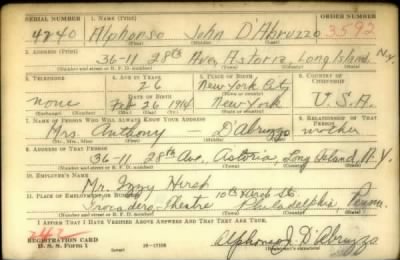 SERIAL NUMBER 1. NAME (Print) ORDER NUMBER
4240 Alphonso John D'Abruzzo 3592
(First) (Middle) (Last)
2. ADDRESS (Print)
36-11 28th Ave, Astoria, Long Island N.Y.
(Number and street or R. F. D. number) (Town) (County) (State)
3. TELEPHONE 4. AGE IN YEARS 5. PLACE OF BIRTH 6. COUNTRY OF CITIZENSHIP
26 New York City
none DATE OF BIRTH (Town or county)
Feb 26 1914 New York U.S.A.
(Exchange) (Number) (Mo.) (Day) (Yr.) (State or country)
7. NAME OF PERSON WHO WILL ALWAYS KNOW YOUR ADDRESS 8. RELATIONSHIP OF THAT PERSON
Mrs. Anthony — D'Abruzzo mother
(Mr., Mrs., Miss) (First) (Middle) (Last)
9. ADDRESS OF THAT PERSON
36-11 28th Ave, Astoria, Long Island, N.Y.
(Number and street or R. F. D. number) (Town) (County) (State)
10. EMPLOYER'S NAME
Mr. Izzy Hirst
11. PLACE OF EMPLOYMENT OR BUSINESS 10th & Arch St.
Trocadero Theatre Philadelphia Penna.
(Number and street or R. F. D. number) (Town) (County) (State)
I AFFIRM THAT I HAVE VERIFIED ABOVE ANSWERS AND THAT THEY ARE TRUE.
REGISTRATION CARD
D. S. S. Form 1 (over) 16-17105 Alphonso J. D'Abruzzo
(Registrant's signature)